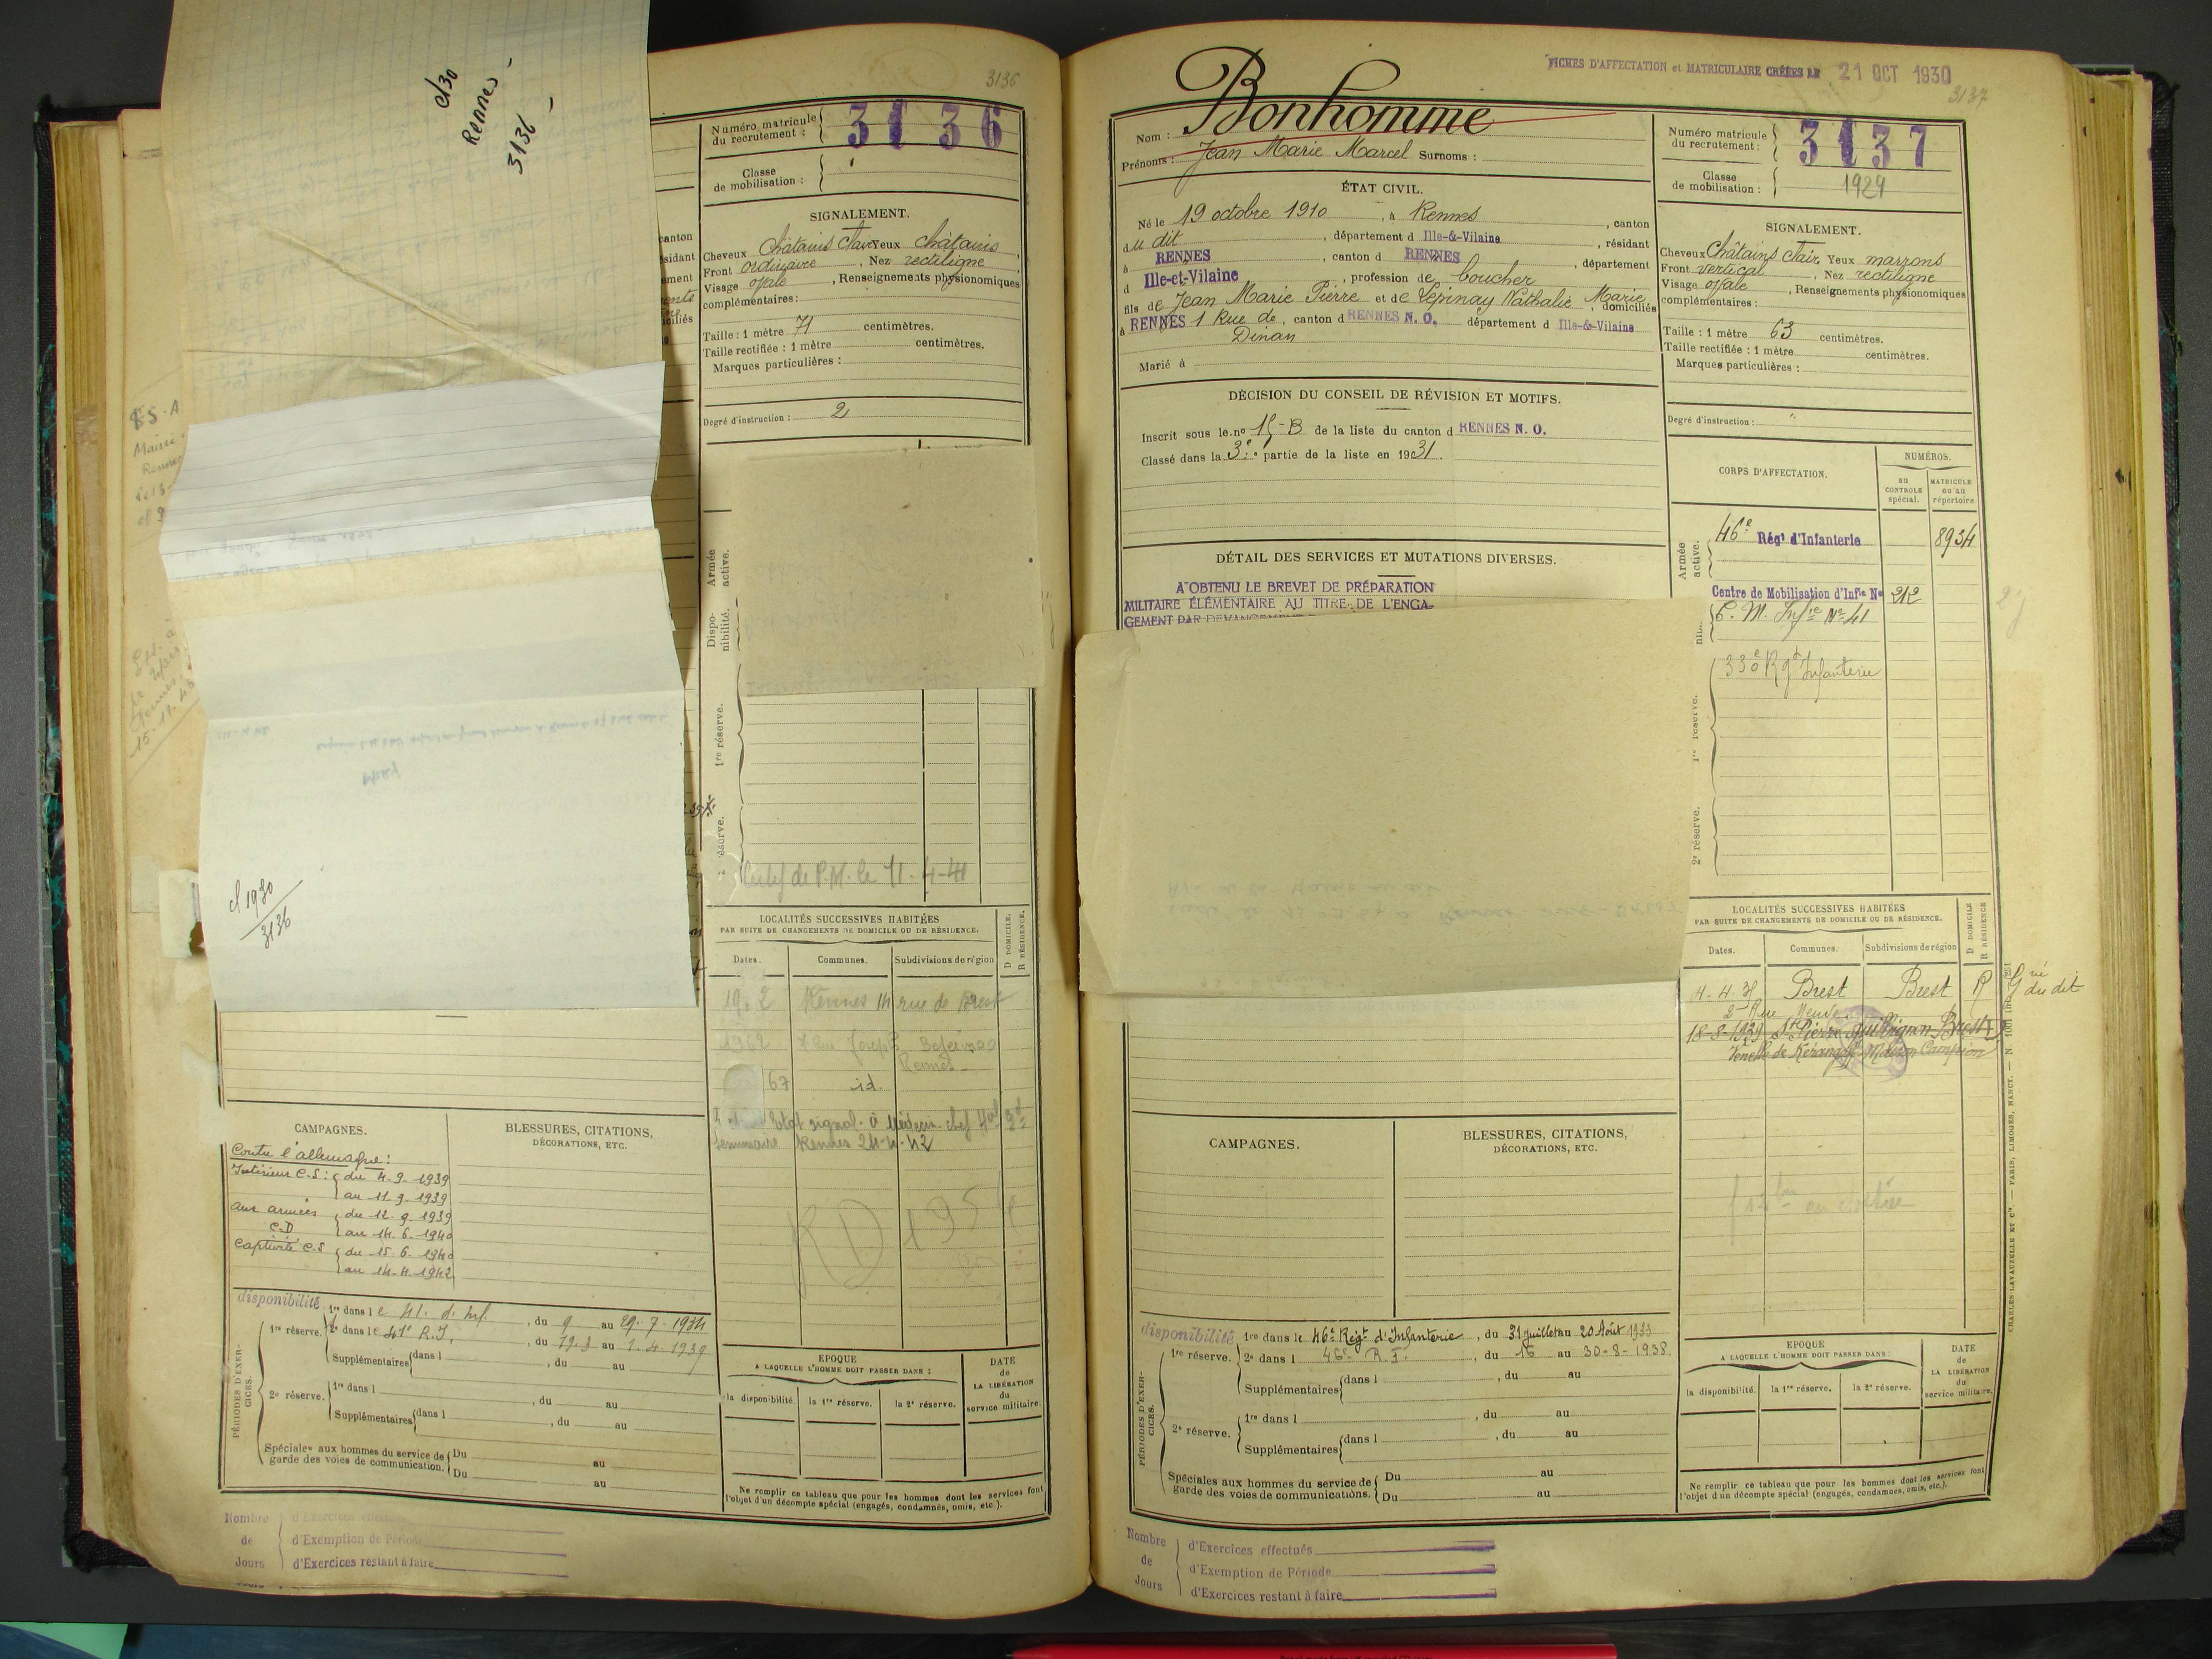 cl 30
Rennes -
3136 -
cl 1930
3136
3136
Numéro matricule
du recrutement :
3136
Classe
de mobilisation :
SIGNALEMENT.
Cheveux Châtains clair Yeux châtains
Front ordinaire, Nez rectiligne
Visage ovale, Renseignements physionomiques
complémentaires :
Taille : 1 mètre 71 centimètres.
Taille rectifiée : 1 mètre centimètres.
Marques particulières :
Degré d'instruction : 2
Armée
active.
Dispo-
nibilité.
1re réserve.
de P.M. le 11-4-41
LOCALITÉS SUCCESSIVES HABITÉES
PAR SUITE DE CHANGEMENTS DE DOMICILE OU DE RÉSIDENCE.
D DOMICILE.
R RÉSIDENCE.
Dates. Communes. Subdivisions de région
Rennes 14 rue de Brest
1962 7 rue Joseph
Rennes
67 id.
Etat signal. à Médecin chef
Rennes 24-4-42
CAMPAGNES.
Contre l'allemagne :
Intérieur C.S : du 4.9.1939
au 11.9.1939
aux armées du 12.9.1939
C.D au 14.6.1940
Captivité C.S du 15.6.1940
au 14.4.1942
BLESSURES, CITATIONS,
DÉCORATIONS, ETC.
disponibilité
PÉRIODES D'EXER-
CICES.
1re réserve. 1re dans le 41. d'Inf., du 9 au 29.7.1934
2e dans le 41e R.I., du 19.3 au 1.4.1939
Supplémentaires dans l , du au
2e réserve. 1re dans l , du au
Supplémentaires dans l , du au
Spéciales aux hommes du service de Du au
garde des voies de communication. Du au
EPOQUE
A LAQUELLE L'HOMME DOIT PASSER DANS :
DATE
de
LA LIBÉRATION
du
service militaire.
la disponibilité. la 1re réserve. la 2e réserve.
Ne remplir ce tableau que pour les hommes dont les services font
l'objet d'un décompte spécial (engagés, condamnés, omis, etc.).
Nombre
de
Jours
d'Exercices effectués
d'Exemption de Période
d'Exercices restant à faire
FICHES D'AFFECTATION et MATRICULAIRE CRÉÉES LE 21 OCT 1930
3137
Nom : Bonhomme
Prénoms : Jean Marie Marcel Surnoms :
Numéro matricule
du recrutement :
3137
Classe
de mobilisation : 1929
ÉTAT CIVIL.
Né le 19 octobre 1910, à Rennes, canton
du dit, département d Ille-&-Vilaine, résidant
à RENNES, canton d RENNES, département
d Ille-et-Vilaine, profession de boucher
fils de Jean Marie Pierre et de Lepinay Nathalie Marie, domiciliés
à RENNES 1 Rue de, canton d RENNES N. O. département d Ille-&-Vilaine
Dinan
Marié à
SIGNALEMENT.
Cheveux Châtains clair, Yeux marrons
Front vertical, Nez rectiligne
Visage ovale, Renseignements physionomiques
complémentaires :
Taille : 1 mètre 63 centimètres.
Taille rectifiée : 1 mètre centimètres.
Marques particulières :
Degré d'instruction : "
DÉCISION DU CONSEIL DE RÉVISION ET MOTIFS.
Inscrit sous le no 15-B de la liste du canton d RENNES N. O.
Classé dans la 3e partie de la liste en 1931.
DÉTAIL DES SERVICES ET MUTATIONS DIVERSES.
A OBTENU LE BREVET DE PRÉPARATION
MILITAIRE ÉLÉMENTAIRE AU TITRE DE L'ENGA-
GEMENT PAR DEVANCEMENT
CORPS D'AFFECTATION.
NUMÉROS.
au
CONTROLE
spécial.
MATRICULE
ou au
répertoire
Armée
active.
46e Régt d'Infanterie 8934
Centre de Mobilisation d'Infie No 212
C. M. Infie No 41
1re réserve.
330e Rgt Infanterie
2e réserve.
LOCALITÉS SUCCESSIVES HABITÉES
PAR SUITE DE CHANGEMENTS DE DOMICILE OU DE RÉSIDENCE.
D DOMICILE
R RÉSIDENCE
Dates. Communes. Subdivisions de région
Brest Brest R
du dit
2 Rue Neuve
18-8-1939 St Pierre Quilbignon Brest
Venelle de Kérangoff Maison Campion
CAMPAGNES.
BLESSURES, CITATIONS,
DÉCORATIONS, ETC.
CHARLES-LAVAUZELLE ET Cie. — PARIS, LIMOGES, NANCY.
disponibilité
PÉRIODES D'EXER-
CICES.
1re réserve. 1re dans le 46e Régt d'Infanterie, du 31 juillet au 20 Août 1933
2e dans l 46e R.I., du 16 au 30-8-1938
Supplémentaires dans l , du au
2e réserve. 1re dans l , du au
Supplémentaires dans l , du au
Spéciales aux hommes du service de Du au
garde des voies de communications. Du au
EPOQUE
A LAQUELLE L'HOMME DOIT PASSER DANS :
DATE
de
LA LIBÉRATION
du
service militaire.
la disponibilité. la 1re réserve. la 2e réserve.
Ne remplir ce tableau que pour les hommes dont les services font
l'objet d'un décompte spécial (engagés, condamnés, omis, etc.).
Nombre
de
Jours
d'Exercices effectués
d'Exemption de Période
d'Exercices restant à faire